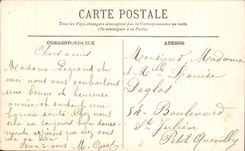 CARTE POSTALE
Tous les Pays étrangers n'acceptent pas la Correspondance au recto.
(Se renseigner à la Poste)
CORRESPONDANCE
Chers amis
Madame Legrand et
moi nous vous souhaitons
une bonne et heureuse
année et surtout une
bonne santé Chez nous
cela va toujours bien
à vous M. Cast
ADRESSE
Monsieur Madame
Mlle Louise
Deglos
54 Boulevard
St Julien
Petit Quevilly